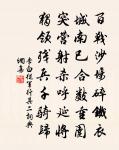 百戰沙場碎鐵衣
城南已合數重圍
突營射殺呼延將
獨領殘兵千騎歸
李白從軍行其二詞典
網集